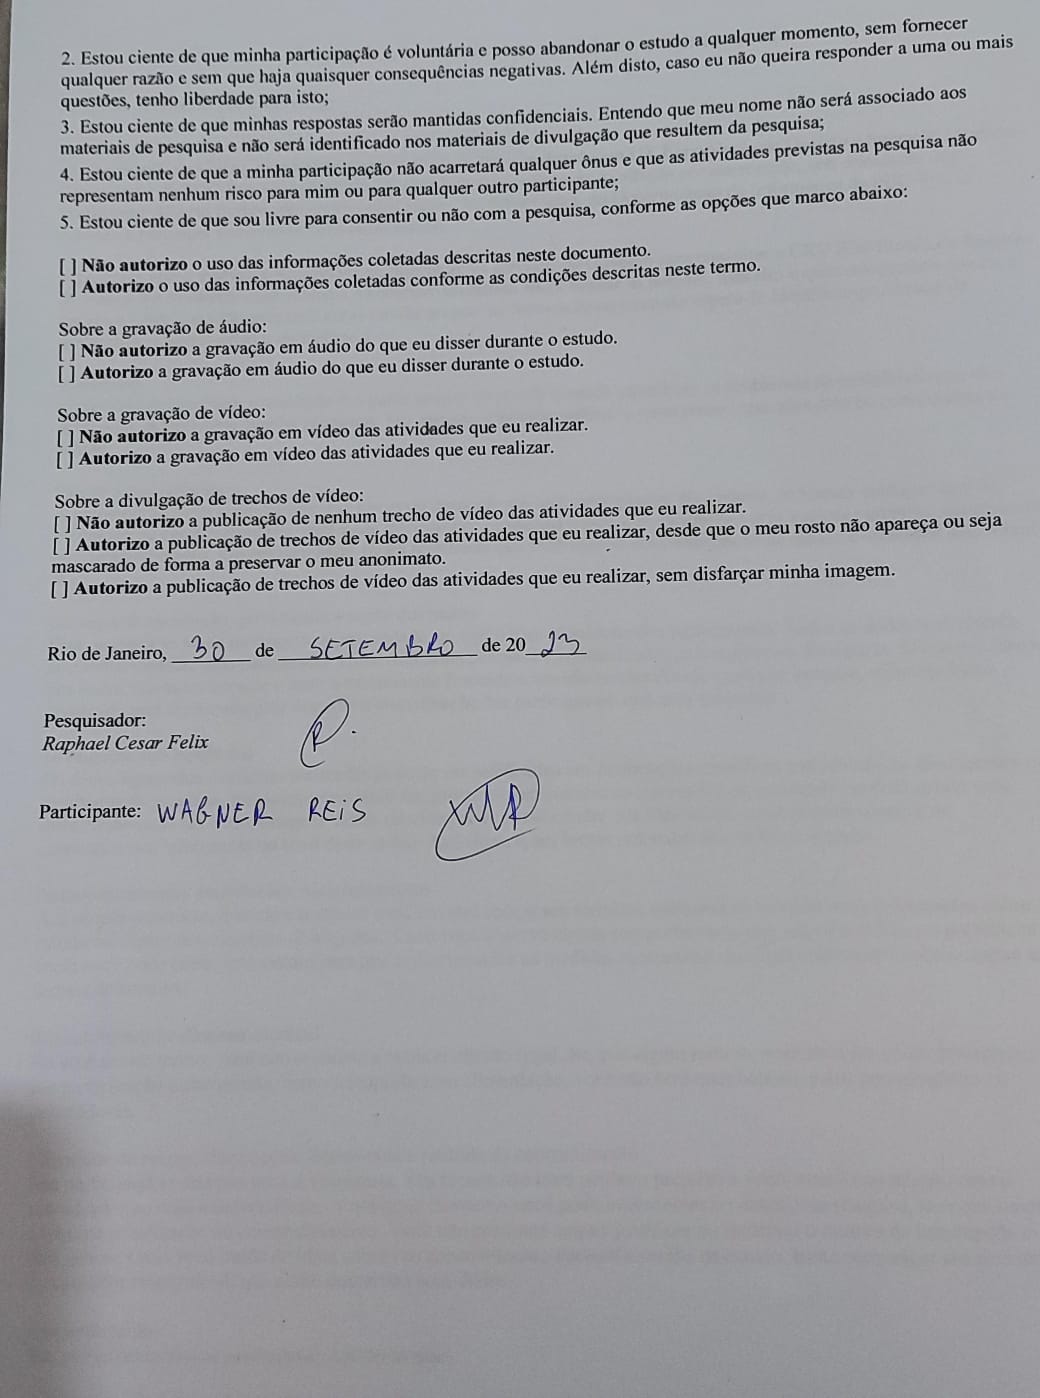 2. Estou ciente de que minha participação é voluntária e posso abandonar o estudo a qualquer momento, sem fornecer
qualquer razão e sem que haja quaisquer consequências negativas. Além disto, caso eu não queira responder a uma ou mais
questões, tenho liberdade para isto;
3. Estou ciente de que minhas respostas serão mantidas confidenciais. Entendo que meu nome não será associado aos
materiais de pesquisa e não será identificado nos materiais de divulgação que resultem da pesquisa;
4. Estou ciente de que a minha participação não acarretará qualquer ônus e que as atividades previstas na pesquisa não
representam nenhum risco para mim ou para qualquer outro participante;
5. Estou ciente de que sou livre para consentir ou não com a pesquisa, conforme as opções que marco abaixo:
[ ] Não autorizo o uso das informações coletadas descritas neste documento.
[ ] Autorizo o uso das informações coletadas conforme as condições descritas neste termo.
Sobre a gravação de áudio:
[ ] Não autorizo a gravação em áudio do que eu disser durante o estudo.
[ ] Autorizo a gravação em áudio do que eu disser durante o estudo.
Sobre a gravação de vídeo:
[ ] Não autorizo a gravação em vídeo das atividades que eu realizar.
[ ] Autorizo a gravação em vídeo das atividades que eu realizar.
Sobre a divulgação de trechos de vídeo:
[ ] Não autorizo a publicação de nenhum trecho de vídeo das atividades que eu realizar.
[ ] Autorizo a publicação de trechos de vídeo das atividades que eu realizar, desde que o meu rosto não apareça ou seja
mascarado de forma a preservar o meu anonimato.
[ ] Autorizo a publicação de trechos de vídeo das atividades que eu realizar, sem disfarçar minha imagem.
Rio de Janeiro, 30 de SETEMBRO de 20 23
Pesquisador:
Raphael Cesar Felix
Participante: WAGNER REIS